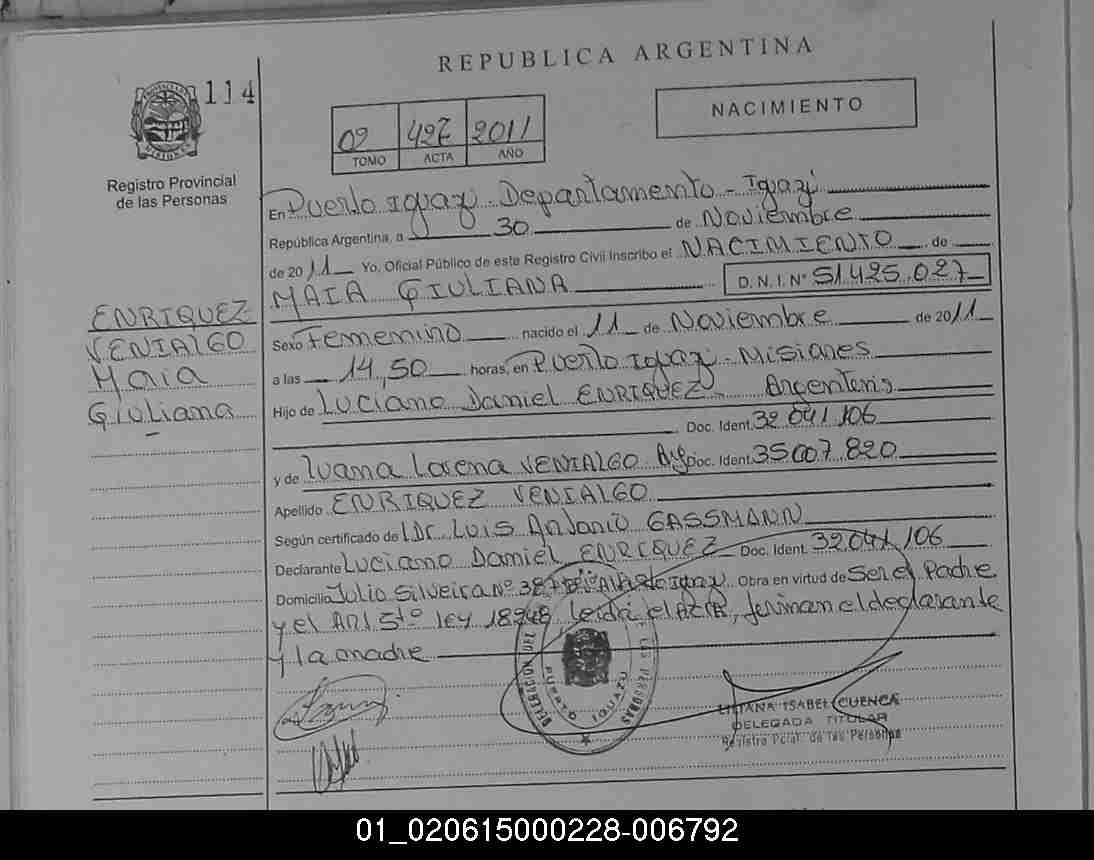 REPUBLICA ARGENTINA
114
NACIMIENTO
02 427 2011
TOMO ACTA AÑO
Registro Provincial
de las Personas
En Puerto Iguazú Departamento - Iguazú
República Argentina, a 30 de Noviembre
de 2011 Yo, Oficial Público de este Registro Civil Inscribo el NACIMIENTO de
MAIA GIULIANA D.N.I. Nº 51425.027
ENRIQUEZ
VENIALGO
Maia
Giuliana
Sexo Femenino nacido el 11 de Noviembre de 2011
a las 14,50 horas, en Puerto Iguazú - Misiones
Hijo de Luciano Daniel ENRIQUEZ Argentino
Doc. Ident. 32 041 106
y de Ivana Lorena VENIALGO Arg Doc. Ident. 35007.820
Apellido ENRIQUEZ VENIALGO
Según certificado del Dr. Luis Antonio GASSMANN
Declarante Luciano Daniel ENRIQUEZ Doc. Ident. 32041 106
Domicilio Julio Silveira Nº Iguazú Obra en virtud de Ser el Padre
y el Art 5to ley 18248 leida el ACTA, firman el declarante
y la madre
DELEGACION DE LAS PERSONAS
PUERTO IGUAZU
LILIANA ISABEL CUENCA
DELEGADA TITULAR
Registro Pcial. de las Personas
01_020615000228-006792